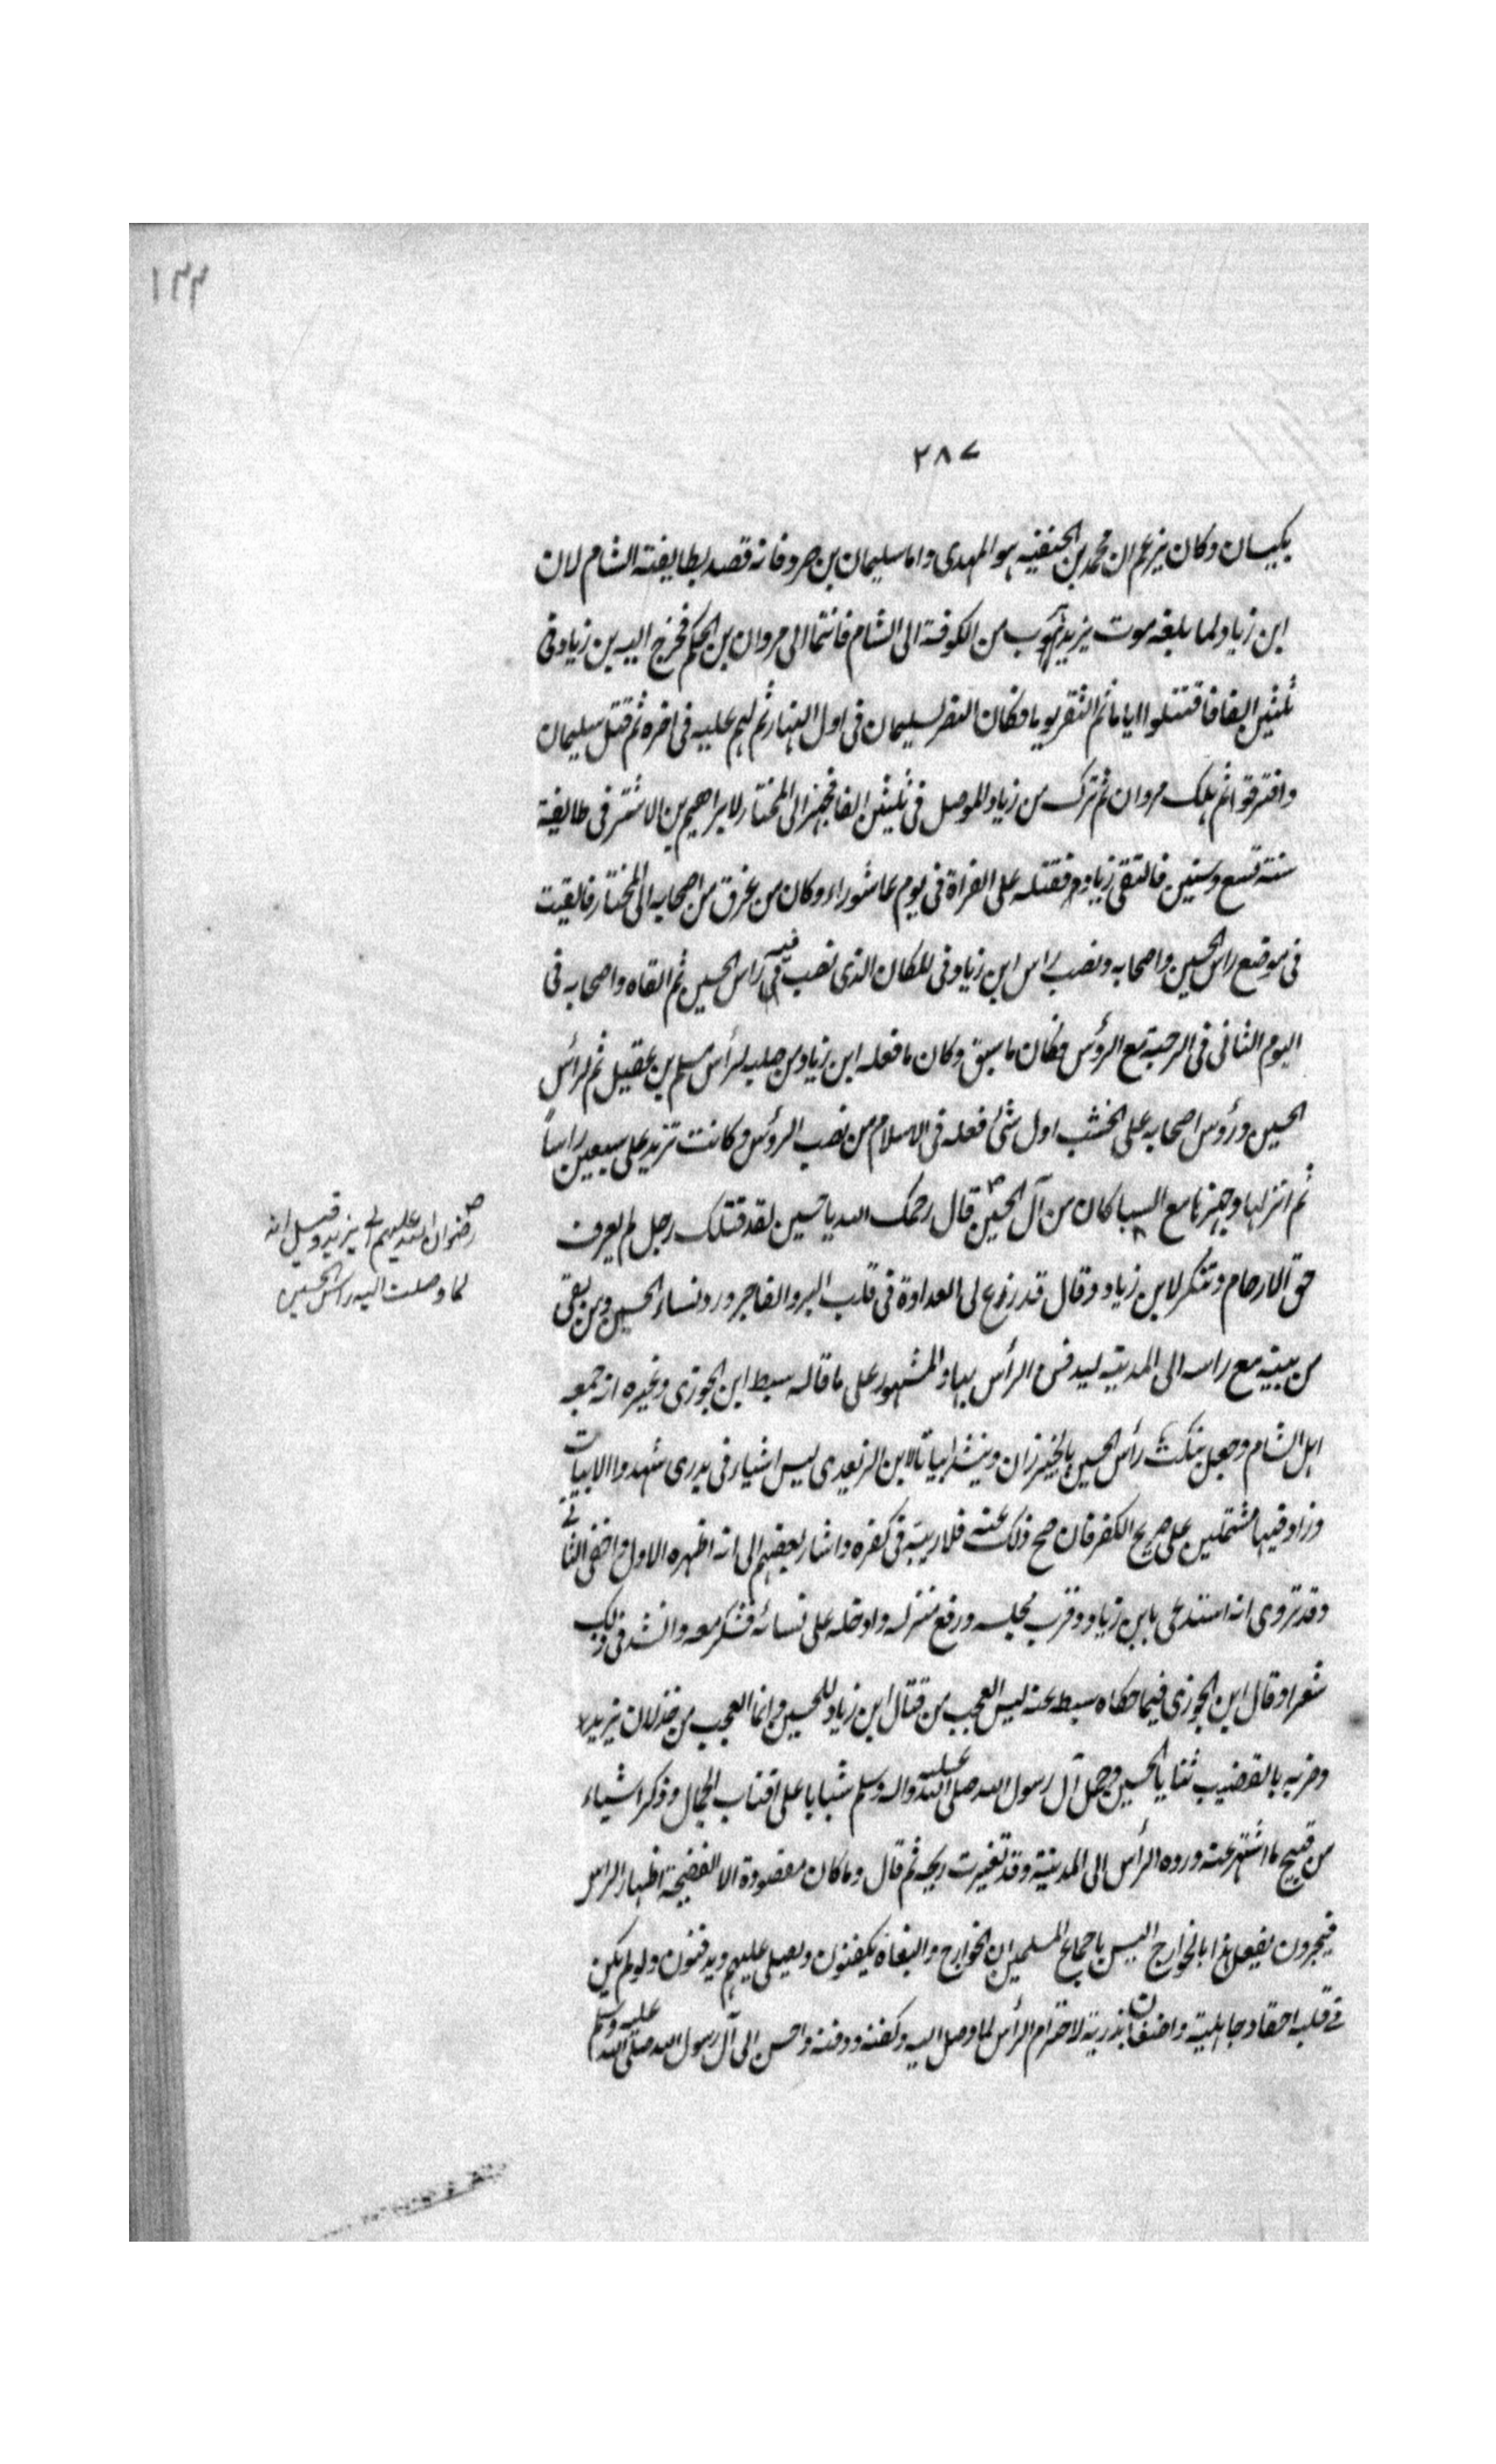 ١٣٣
٢٨٧
بكيسان وكان يزعم ان محمد بن الحنفيه هو المهدى واما سليمان بن صرد فانه قصد بطايفته الشام لان
ابن زياد لما بلغه موت يزيد هرب من الكوفة الى الشام فانتما الى مروان بن الحكم فخرج اليه بن زياد فى
ثلثين الفا فاقتتلوا اياما ثم التقر يوما فكان النصر لسليمان فى اول النهار ثم لهم عليه فى اخره ثم قتل سليمان
وافترقوا ثم هلك مروان ثم ترك من زياد الموصل فى ثلثين الفا فجهز الى المختار لابراهيم بن الاشتر فى طايفة
سنة تسع وستين فالتقى زياد فقتله على الفراة فى يوم عاشوراء وكان من غرق من اصحابه الى المختار فالقيت
فى موضع راس الحسين واصحابه ونصب راس ابن زياد فى المكان الذى نصب فيه راس الحسين ثم القاه واصحابه فى
اليوم الثانى فى الرحبة مع الرؤس فكان ما سبق وكان ما فعله ابن زياد من صلب لرأس مسلم بن عقيل ثم لرأس
الحسين ورؤس اصحابه على الخشب اول شئ فعله فى الاسلام من نصب الرؤس وكانت تزيد على سبعين راسا
ثم انزلها وجهزها مع السبا كان من آل الحسين قال رحمك الله يا حسين لقد قتلك رجل لم يعرف
رضوان الله عليهم الى يزيد وقيل انه
لما وصلت اليه راس الحسين
حق الارحام وتنكر لابن زياد وقال قد زرع لى العداوة فى قلب البر والفاجر ورد نساء الحسين ومن بقى
من بيته مع راسه الى المدينه ليدفن الرأس بها والمشهور على ما قاله سبط ابن الجوزى وغيره انه جمع
اهل الشام وجعل ينكث رأس الحسين بالخيزران وينشد ابياتا لابن الزبعرى ليس اشياء فى بدرى شهدوا الابيات
وزاد فيها مشتملين على صريح الكفر فان صح ذلك عنه فلا ريبة فى كفره واشار بعضهم الى انه اظهره الاول واخفى الثانى
وقد تروى انه استدعى بابن زياد وقرب مجلسه ورفع منزله وادخله على نسائه فشكر معه وانشد فى ذلك
شعرا وقال ابن الجوزى فيما حكاه سبط عنه ليس العجب من قتال ابن زياد للحسين وانما العجب من خذلان يزيد
وضربه بالقضيب ثنايا الحسين وحمل آل رسول الله صلى الله عليه واله وسلم شبابا على اقتاب الجمال وذكر اشياء
من قبيح ما اشتهر عنه ورده الرأس الى المدينة وقد تغيرت ريحه ثم قال وما كان مقصوده الا الفضيحة اظهار الراس
فيجرون يفعل هذا بالخوارج اليس باجماع المسلمين ان الخوارج والبغاة يكفنون ويصلى عليهم ويدفنون ولو لم يكن
فى قلبه احقاد جاهلية واضغان بذرية لاحترام الرأس لما وصل اليه وكفنه ودفنه واحسن الى آل رسول الله صلى الله عليه وسلم